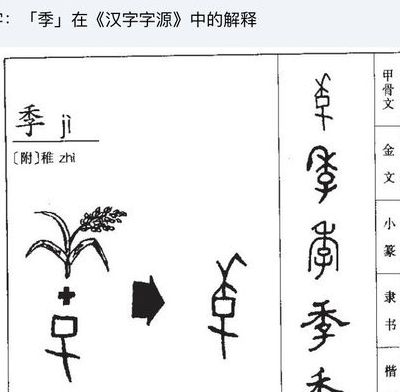 字：「季」在《汉字字源》中的解释
季 jì
〔附〕稚 zhì
甲骨文
金文
小篆
隶书
楷